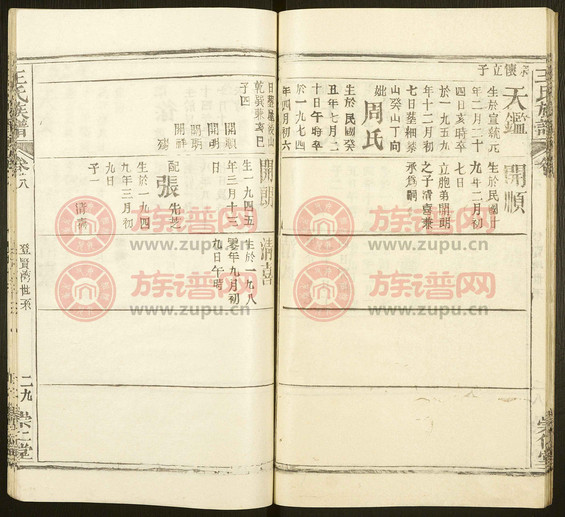 王氏族譜
懷立子
天鑑
生於宣統元
年二月二十
四日亥時卒
於一九五九
年十二月初
七日葬細葉
山癸山丁向
妣周氏
生於民國癸
丑年七月二
十日午時卒
於一九七四
年四月初六
日葬
乾巽兼亥巳
子四
開順
開明
開朗
開祥
開順
生於民國十
九年二月初
七日
立胞弟開明
之子清喜兼
承為嗣
開朗
生一九四五
年三月十三
日
配張先芝
生於一九四
九年三月初
九日
子一
清喜
清喜
生於一九八
零年九月初
九日午時
王氏族譜
卷八
登賢灣世系
二九
崇仁堂
族谱网
www.zupu.cn
族谱网
www.zupu.cn
族谱网
www.zupu.cn
族谱网
www.zupu.cn